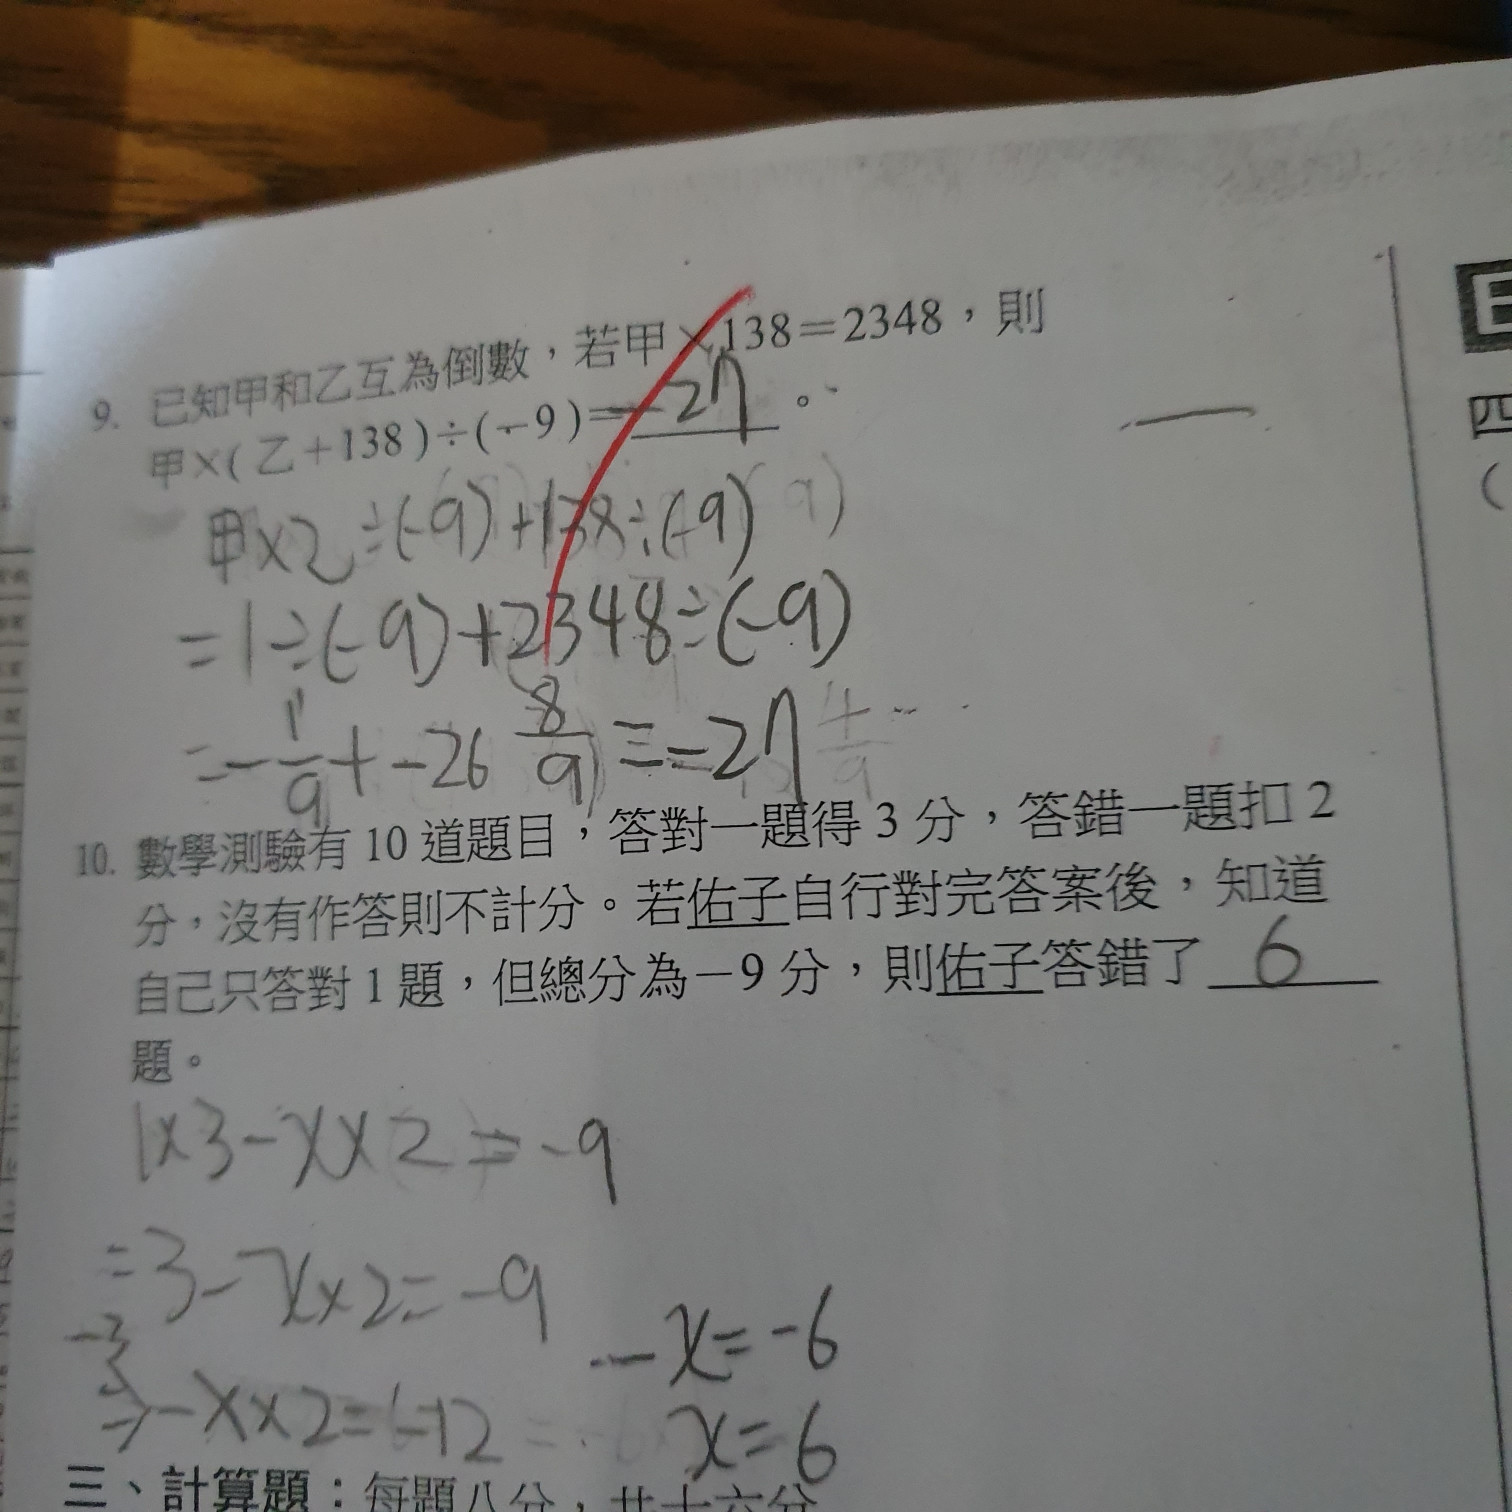 9. 已知甲和乙互為倒數，若甲×138＝2348，則
甲×(乙+138)÷(-9)=-27。
甲×乙÷(-9)+138÷(-9)
=1÷(-9)+2348÷(-9)
=-1/9+-26 8/9=-27
10. 數學測驗有 10 道題目，答對一題得 3 分，答錯一題扣 2
分，沒有作答則不計分。若佑子自行對完答案後，知道
自己只答對 1 題，但總分為－9 分，則佑子答錯了 6
題。
1×3-x×2=-9
=3-x×2=-9
-x×2=-12
-x=-6
x=6
三、計算題：每題八分，共十六分
四
(